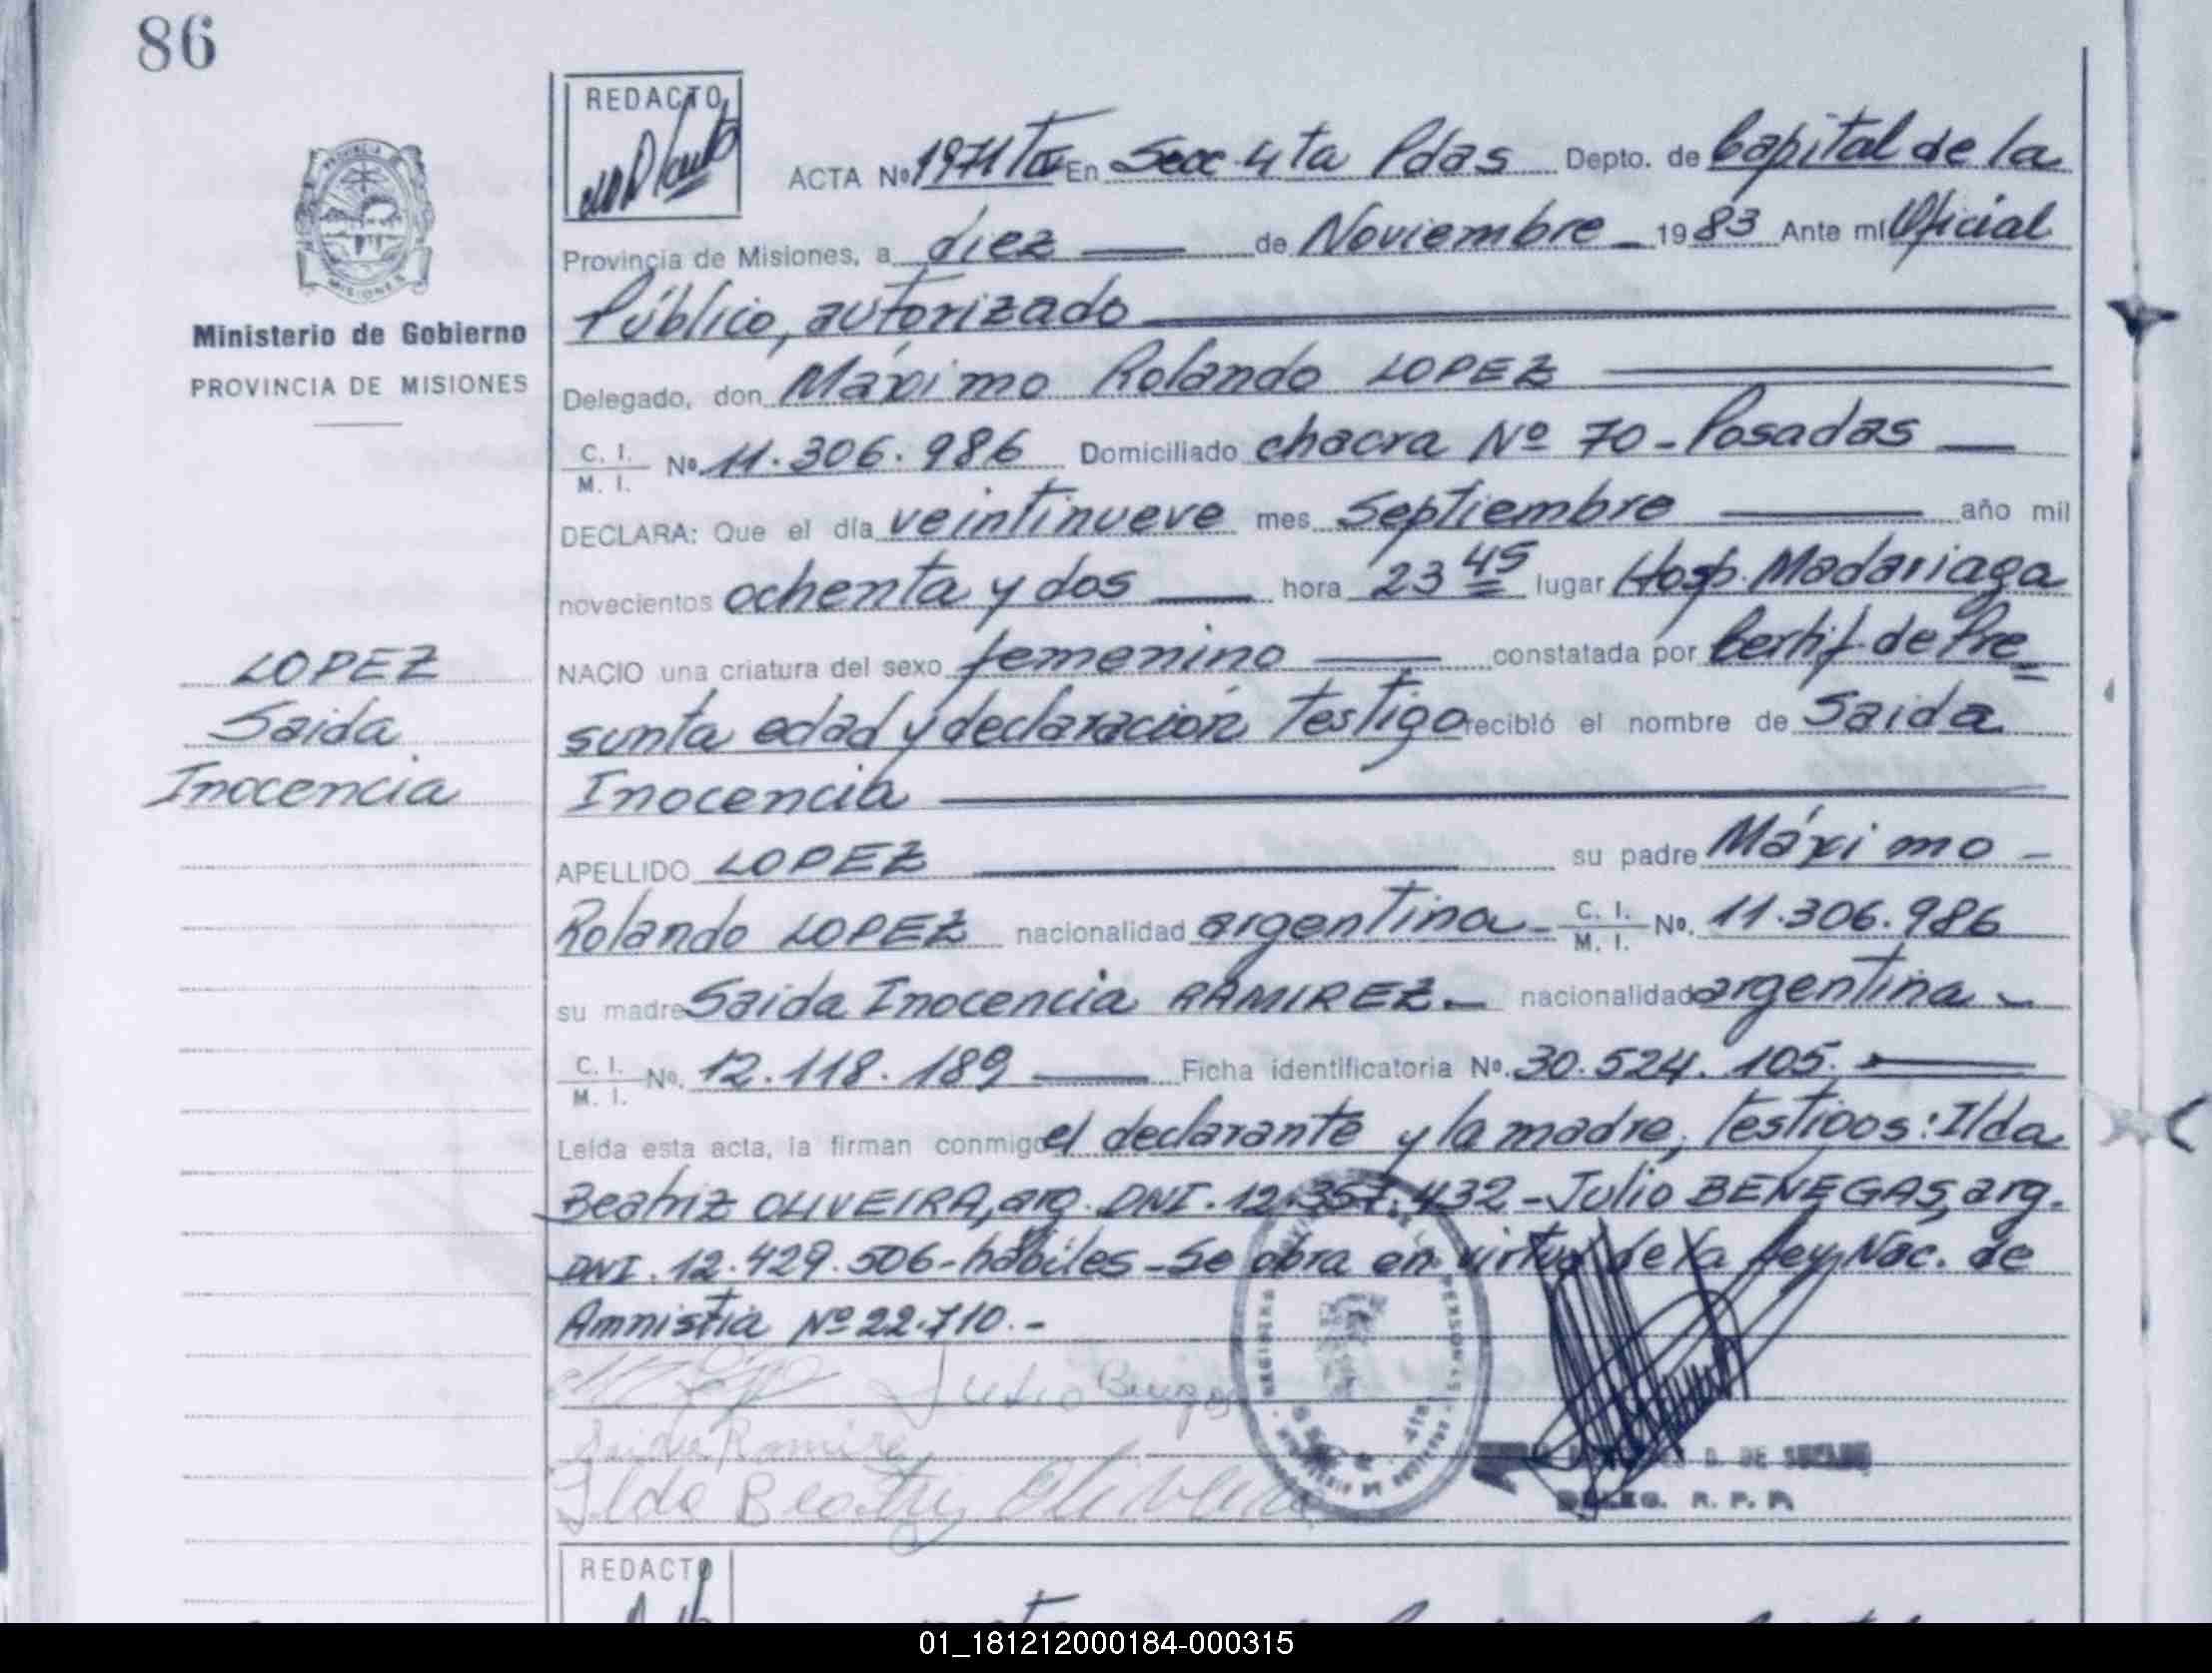 86
REDACTO
PROVINCIA
MISIONES
Ministerio de Gobierno
PROVINCIA DE MISIONES
ACTA Nº 1971 En Secc 4ta Pdas Depto. de Capital de la
Provincia de Misiones, a diez de Noviembre 1983 Ante mi Oficial
Público, autorizado
Delegado, don Máximo Rolando LOPEZ
C. I. M. I. Nº 11.306.986 Domiciliado chacra Nº 70 - Posadas
DECLARA: Que el día veintinueve mes Septiembre año mil
novecientos ochenta y dos hora 23 45 lugar Hosp. Madariaga
NACIO una criatura del sexo femenino constatada por Certif. de Pre=
sunta edad y declaración testigo recibió el nombre de Saida
Inocencia
LOPEZ
Saida
Inocencia
APELLIDO LOPEZ su padre Máximo -
Rolando LOPEZ nacionalidad argentina - C. I. M. I. Nº. 11.306.986
su madre Saida Inocencia RAMIREZ.- nacionalidad argentina -
C. I. M. I. Nº. 12.118.189 Ficha identificatoria Nº. 30.524.105.
Leída esta acta, la firman conmigo el declarante y la madre, testigos: Ilda
Beatriz OLIVEIRA, arg. DNI. 12.357.432 - Julio BENEGAS, arg.
DNI. 12.429.506 - hábiles - Se obra en virtud de la Ley Nac. de
Amnistia Nº 22.710.-
Julio
Saida Ramirez
Ilda Beatriz Oliveira
DELEG. R. P. P.
REDACTO
01_181212000184-000315